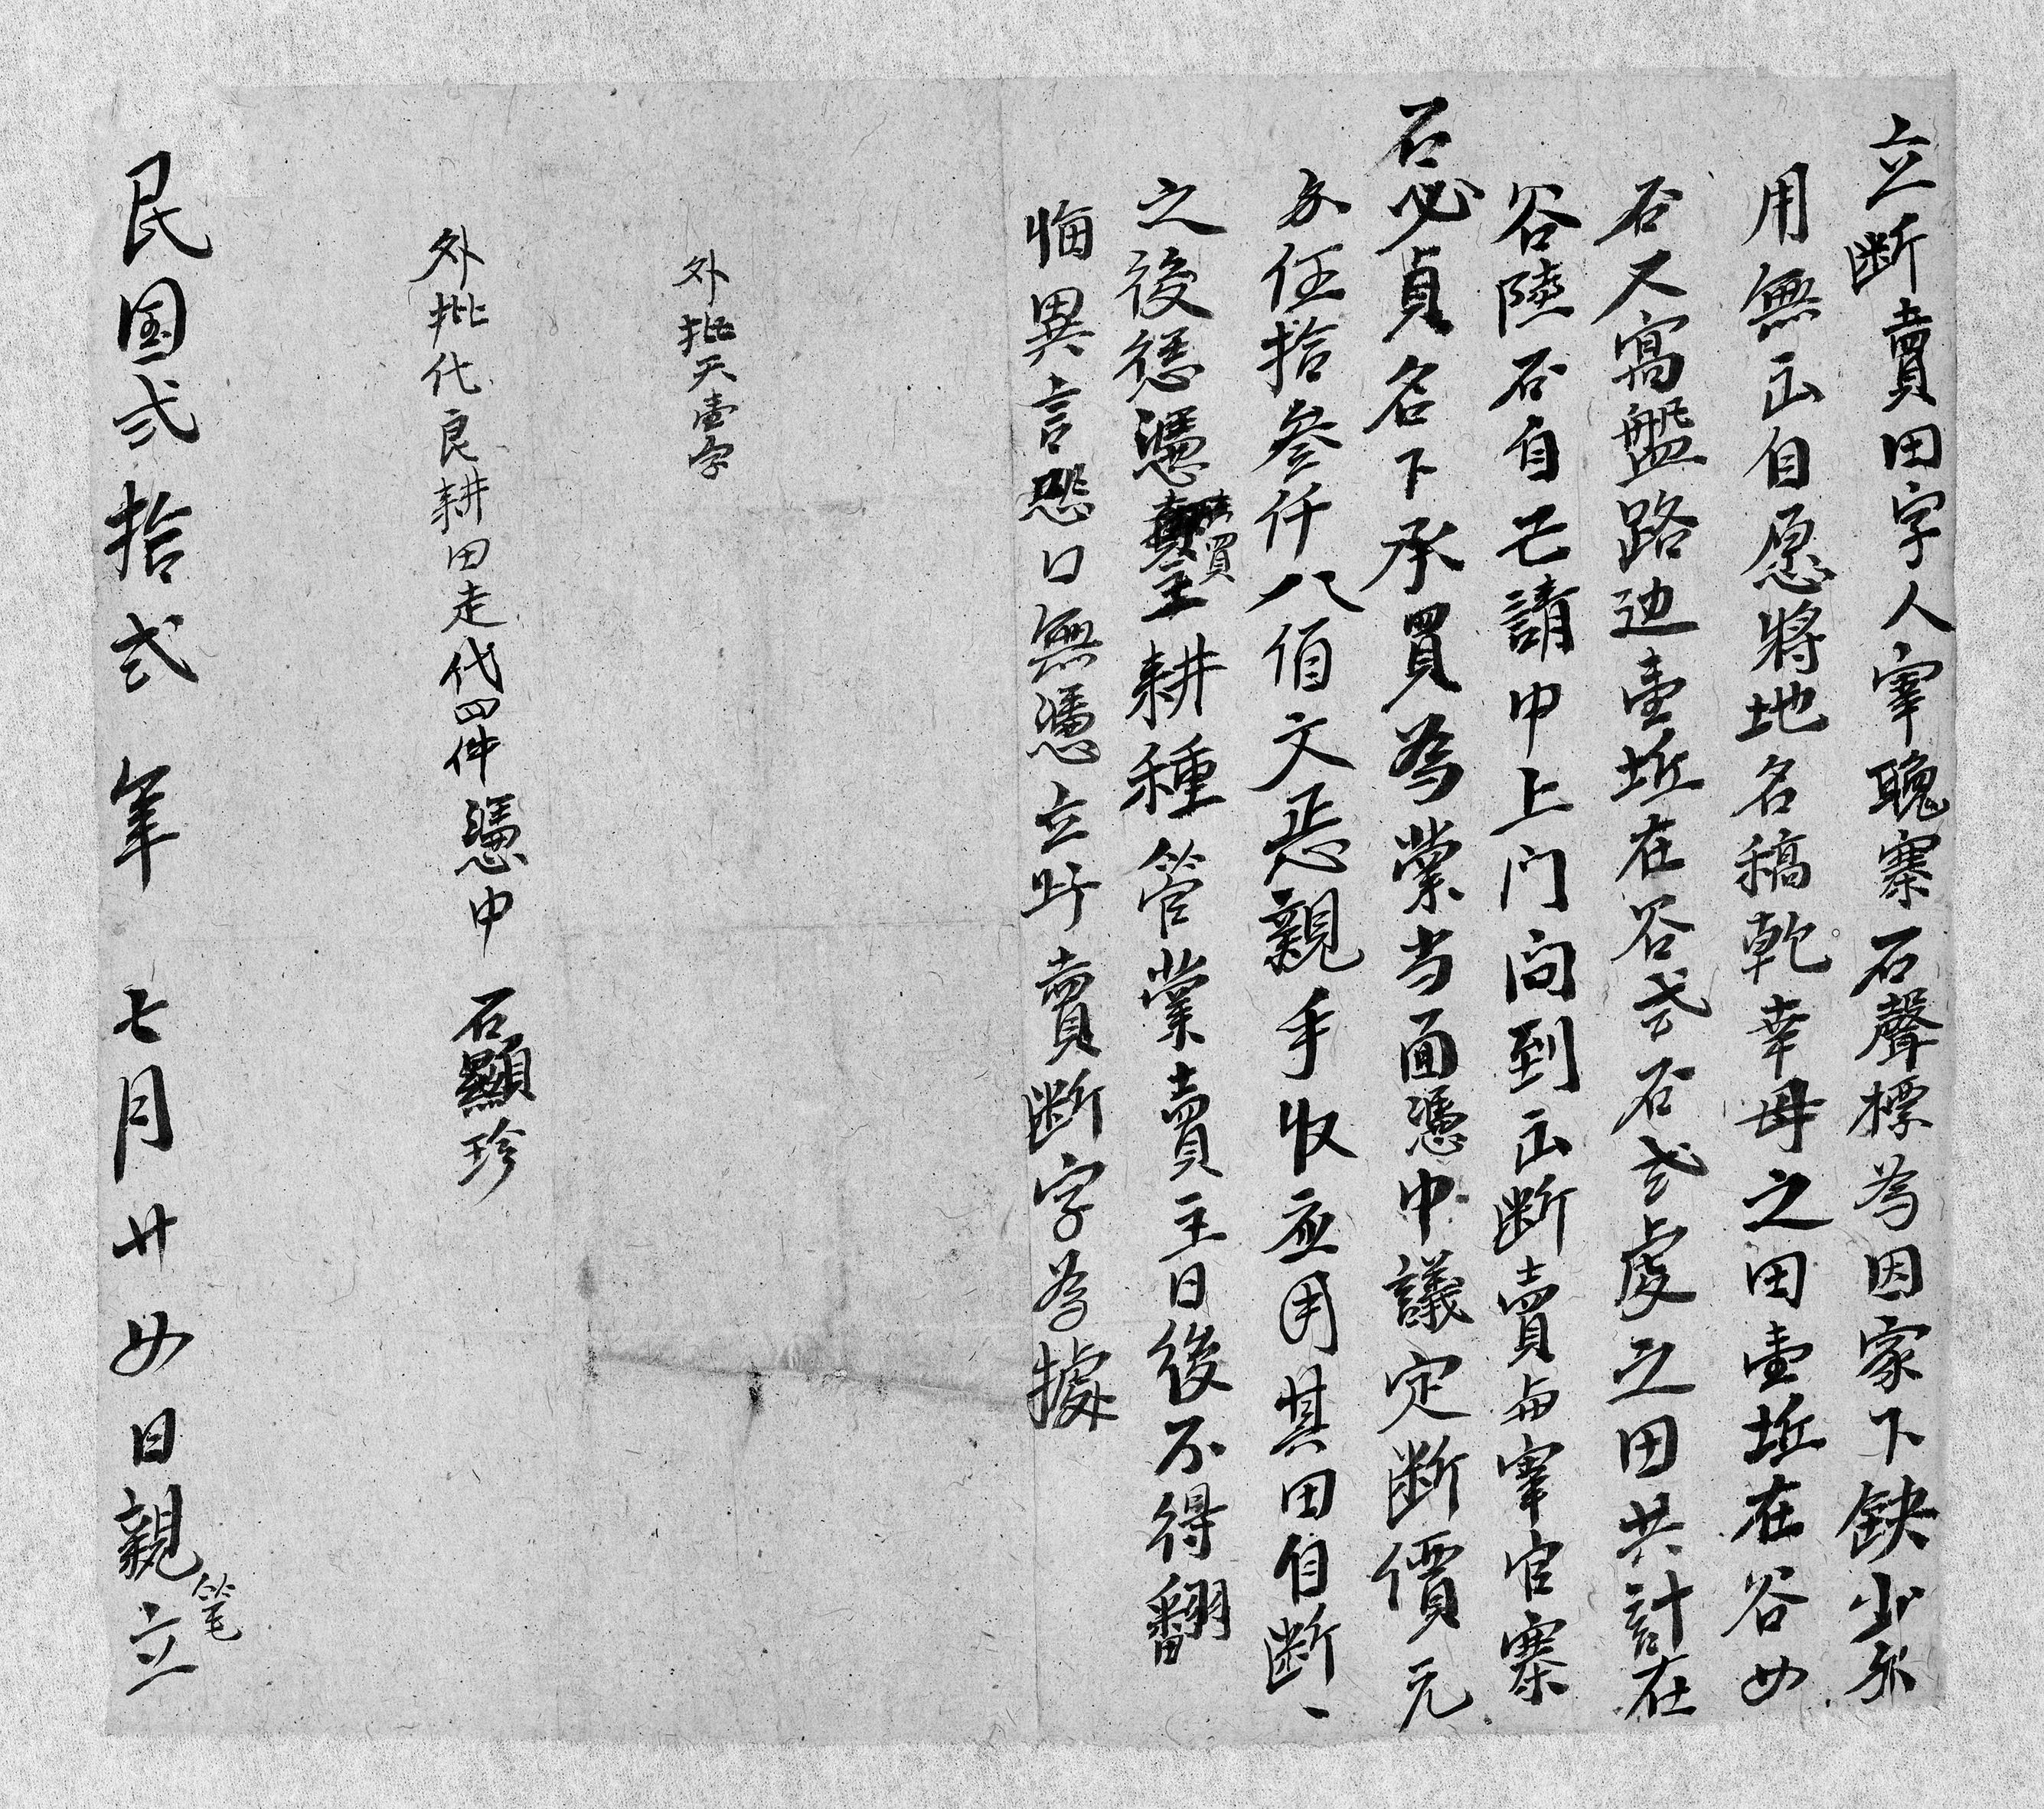 立断賣田字人宰䰟寨石聲標為因家下缺少
用無出自愿將地名稿乾幸毋之田壹坵在谷
石又窩盤路边壹坵在谷弍石弍處之田共計在
谷陸石自己請中上门问到出断賣与宰官寨
石必貞名下承買為業当面憑中議定断價元
伍拾叁仟八佰文恁親手收应用其田自断
之後恁憑買主耕種管業賣主日後不得翻
悔異言恐口無憑立賣断字為據
外批天壹字
外批化良耕田走代四件憑中 石顯珍
民国弍拾弍年七月廿四日親筆立